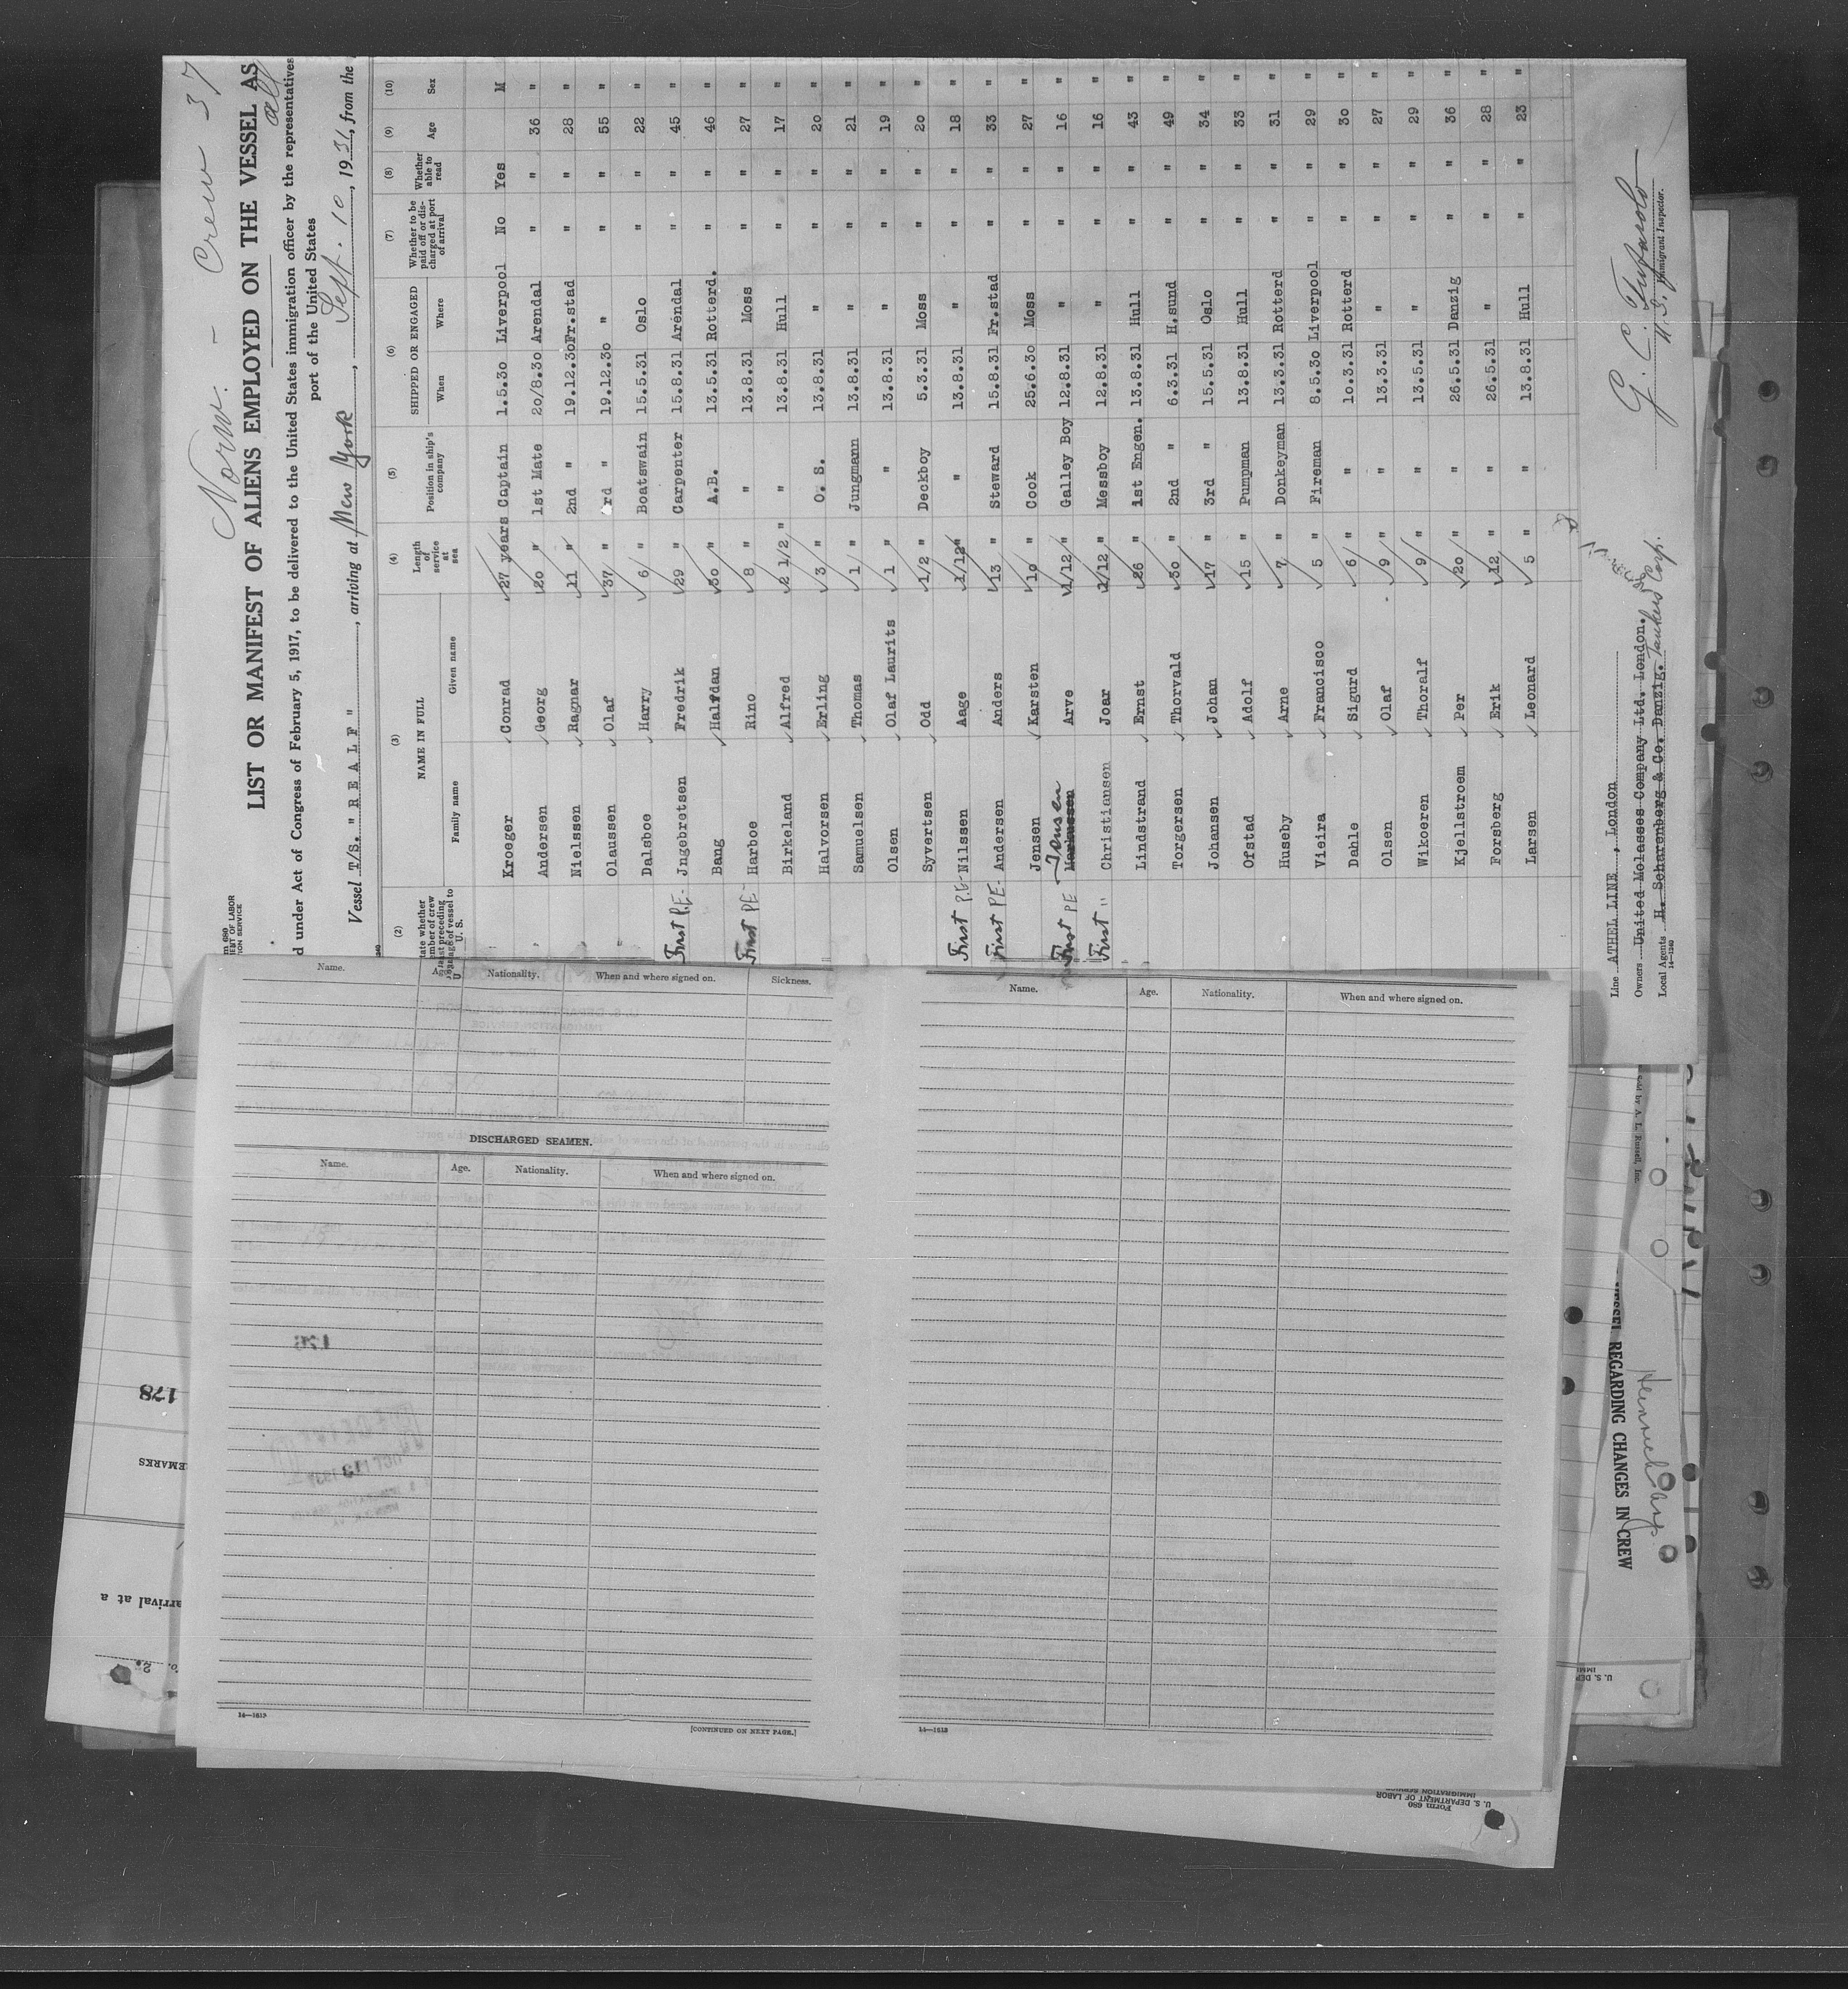 Norw. - Crew 37
LIST OR MANIFEST OF ALIENS EMPLOYED ON THE VESSEL AS
all
d under Act of Congress of February 5, 1917, to be delivered to the United States immigration officer by the representatives
port of the United States
Vessel T/S. " R E A L F ", arriving at New York, Sept. 10, 1931, from the
(2) (3) (4) (5) (6) (7) (8) (9) (10)
NAME IN FULL
Family name Given name
Length of service at sea
Position in ship's company
SHIPPED OR ENGAGED
When Where
Whether to be paid off or discharged at port of arrival
Whether able to read
Age
Sex
Kroeger Conrad 27 years Captain 1.5.30 Liverpool No Yes M
Andersen Georg 20 " 1st Mate 20/8.30 Arendal " " 36 "
Nielssen Ragnar 11 " 2nd " 19.12.30 Fr.stad " " 28 "
Olaussen Olaf 37 " rd " 19.12.30 " " " 55 "
Dalsboe Harry 6 " Boatswain 15.5.31 Oslo " " 22 "
First P.E- Jngebretsen Fredrik 29 " Carpenter 15.8.31 Arendal " " 45 "
Bang Halfdan 30 " A.B. 13.5.31 Rotterd. " " 46 "
First PE- Harboe Rino 8 " " 13.8.31 Moss " " 27 "
Birkeland Alfred 2 1/2 " " 13.8.31 Hull " " 17 "
Halvorsen Erling 3 " O. S. 13.8.31 " " " 20 "
Samuelsen Thomas 1 " Jungmann 13.8.31 " " " 21 "
Olsen Olaf Laurits 1 " " 13.8.31 " " " 19 "
Syvertsen Odd 1/2 " Deckboy 5.3.31 Moss " " 20 "
First P.E- Nilssen Aage 1/12 " " 13.8.31 " " " 18 "
First PE- Andersen Anders 13 " Steward 15.8.31 Fr.stad " " 33 "
Jensen Karsten 10 " Cook 25.6.30 Moss " " 27 "
First PE Jensen Markussen Arve 1/12 " Galley Boy 12.8.31 " " " 16 "
First " Christiansen Joar 1/12 " Messboy 12.8.31 " " " 16 "
Lindstrand Ernst 26 " 1st Engen. 13.8.31 Hull " " 43 "
Torgersen Thorvald 30 " 2nd " 6.3.31 H.sund " " 49 "
Johansen Johan 17 " 3rd " 15.5.31 Oslo " " 34 "
Ofstad Adolf 15 " Pumpman 13.8.31 Hull " " 33 "
Huseby Arne 7 " Donkeyman 13.3.31 Rotterd " " 31 "
Vieira Francisco 5 " Fireman 8.5.30 Liverpool " " 29 "
Dahle Sigurd 6 " " 10.3.31 Rotterd " " 30 "
Olsen Olaf 9 " " 13.3.31 " " " 27 "
Wikoeren Thoralf 9 " " 13.5.31 " " " 29 "
Kjellstroem Per 20 " " 26.5.31 Danzig " " 36 "
Forsberg Erik 12 " " 26.5.31 " " " 28 "
Larsen Leonard 5 " " 13.8.31 Hull " " 23 "
Line ATHEL LINE , London
Owners United Molasses Company Ltd. London.
Local Agents H. Scharenberg & Co. Danzig. Tankers Corp.
14-1240
U.S. Immigrant Inspector.
Name. Age. Nationality. When and where signed on. Sickness.
DISCHARGED SEAMEN.
Name. Age. Nationality. When and where signed on.
14-1613
[CONTINUED ON NEXT PAGE.]
Name. Age. Nationality. When and where signed on.
14-1613
178
REMARKS
arrival at a
REGARDING CHANGES IN CREW
Sold by A. L. Russell, Inc.
Form 680
U. S. DEPARTMENT OF LABOR
IMMIGRATION SERVICE